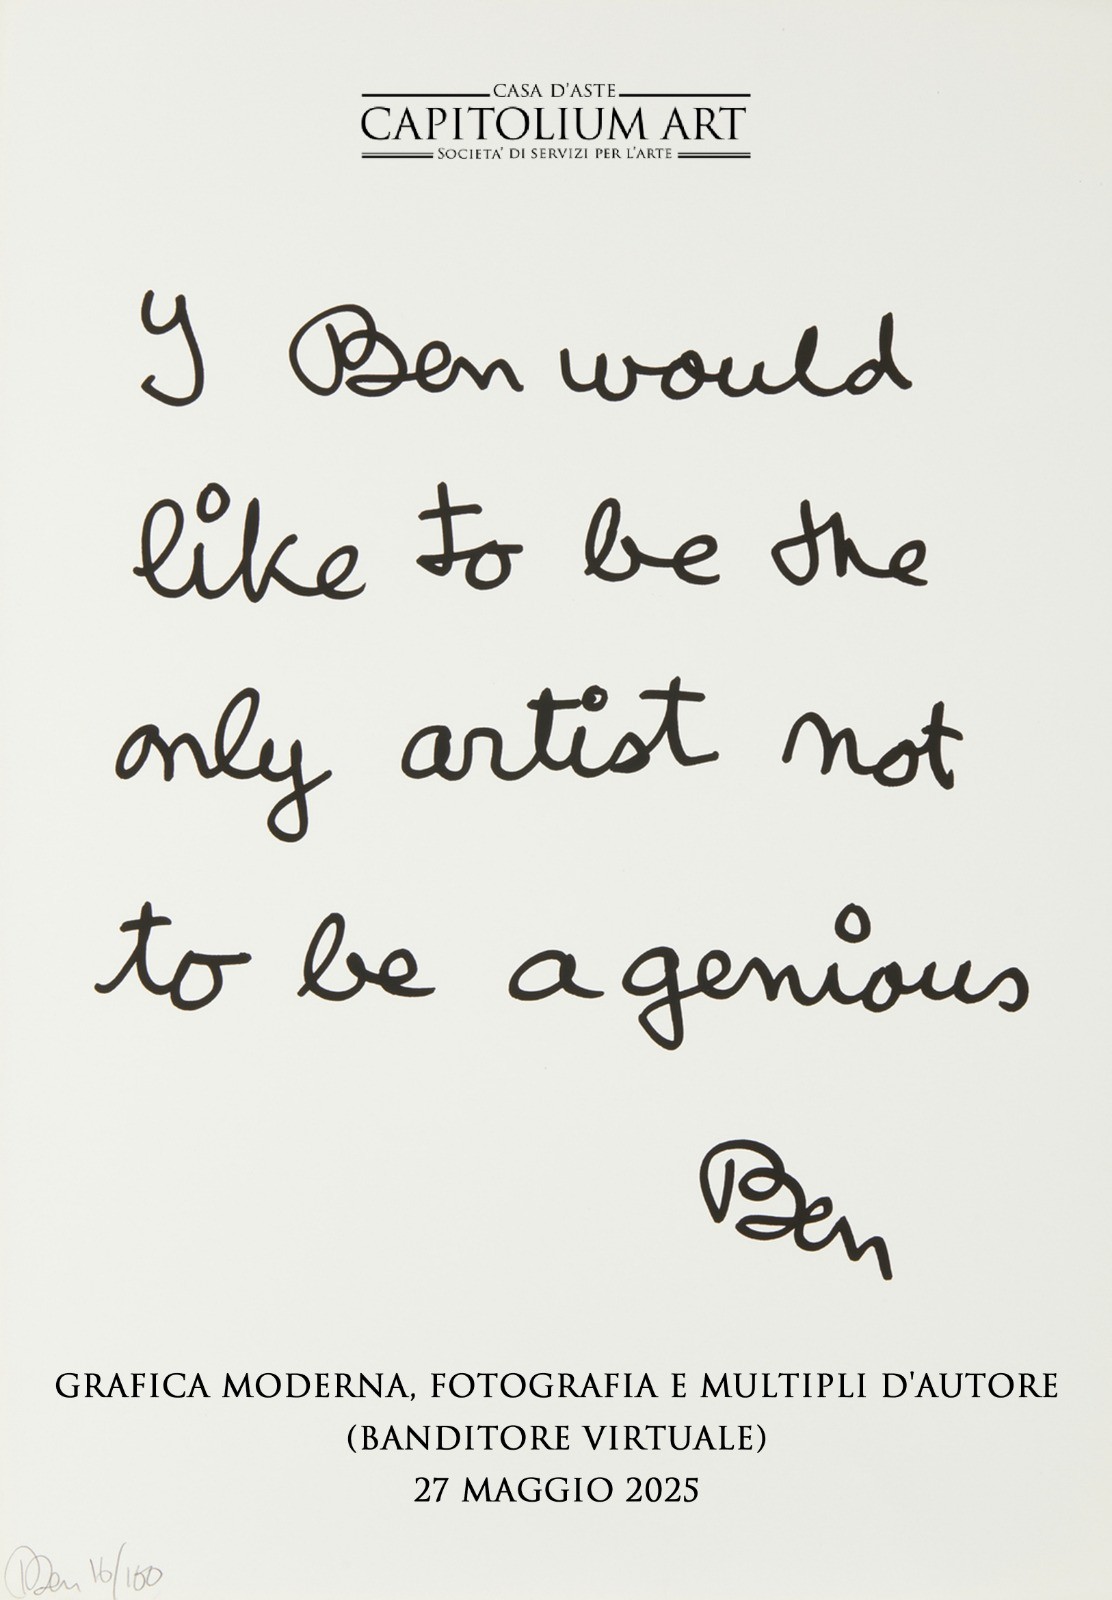 CASA D'ASTE
CAPITOLIUM ART
SOCIETA' DI SERVIZI PER L'ARTE
Y Ben would
like to be the
only artist not
to be a genious
Ben
GRAFICA MODERNA, FOTOGRAFIA E MULTIPLI D'AUTORE
(BANDITORE VIRTUALE)
27 MAGGIO 2025
Ben 16/100